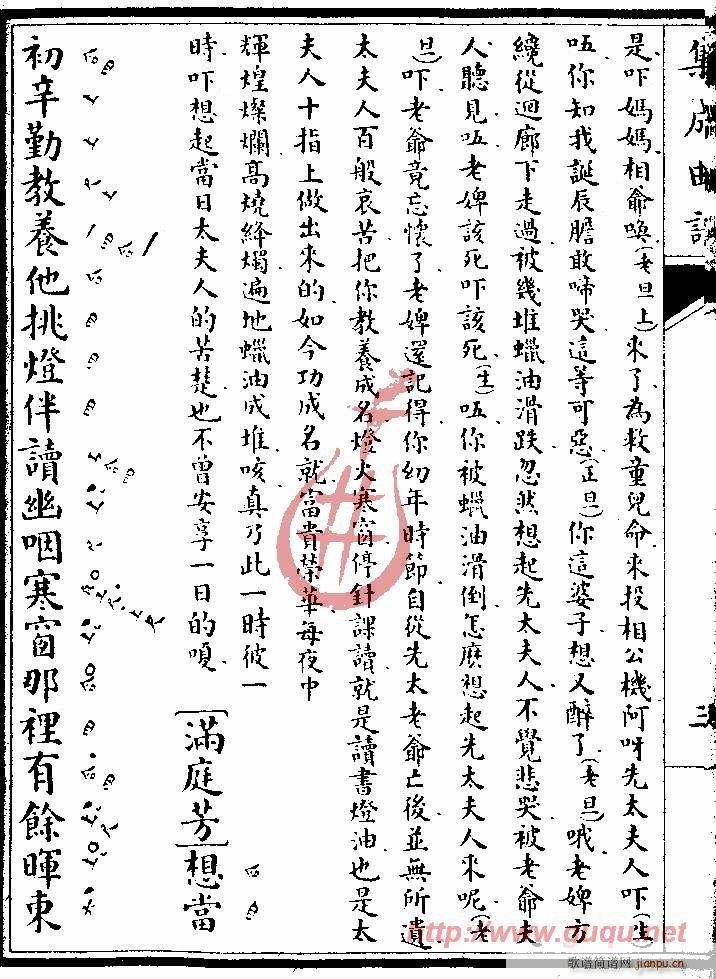 集成曲譜
三
是吓媽媽相爺喚(老旦上)來了為救童兒命來投相公機阿呀先太夫人吓(生)
唔你知我誕辰膽敢啼哭這等可惡(正旦)你這婆子想又醉了(老旦)哦老婢方
纔從迴廊下走過被幾堆蠟油滑跌忽然想起先太夫人不覺悲哭被老爺夫
人聽見唔老婢該死吓該死(生)唔你被蠟油滑倒怎麽想起先太夫人來呢(老
旦)吓老爺竟忘懷了老婢還記得你幼年時節自從先太老爺亡後並無所遺
太夫人百般哀苦把你教養成名燈火寒窗停針課讀就是讀書燈油也是太
夫人十指上做出來的如今功成名就富貴榮華每夜中
輝煌燦爛高燒絳燭遍地蠟油成堆咳真乃此一時彼一
時吓想起當日太夫人的苦楚也不曾安享一日的嗄
[滿庭芳]想當
初辛勤教養他挑燈伴讀幽咽寒窗那裡有餘暉東
www.guqu.net
歌谱简谱网
jianpu.cn